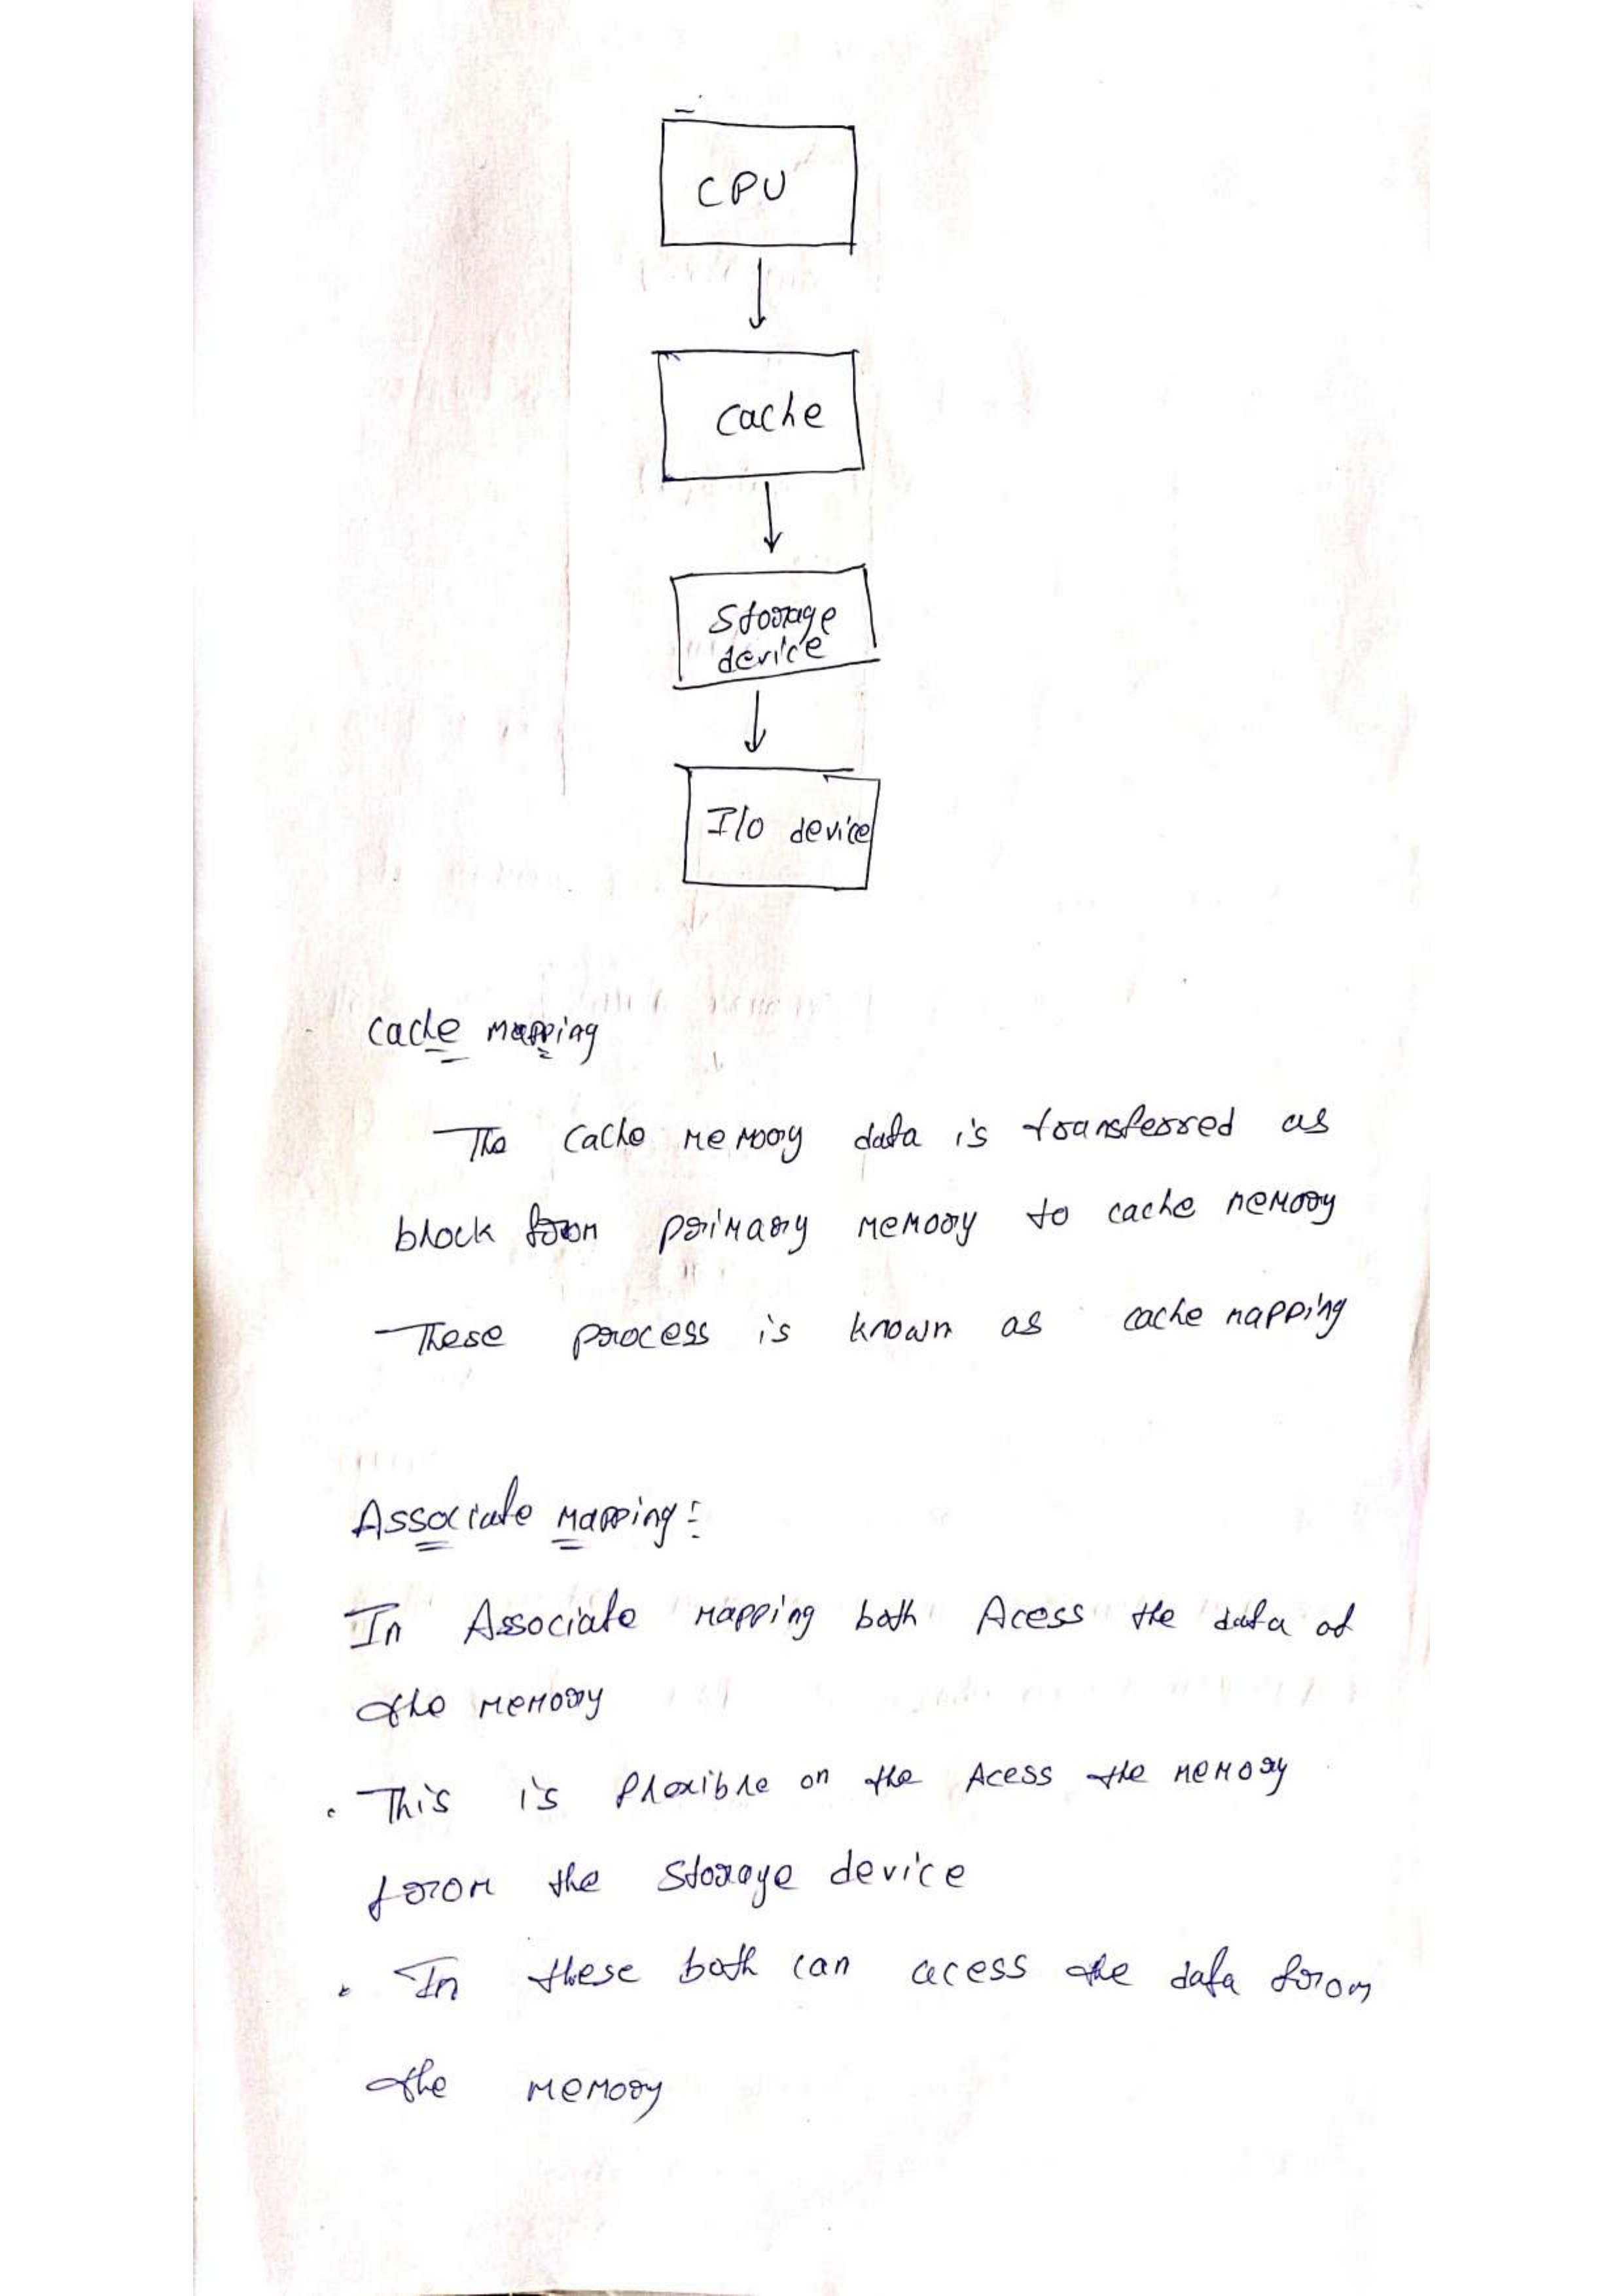 CPU
cache
Storage
device
I/o device
cache mapping
The cache memory data is transferred as
block from primary memory to cache memory
These process is known as cache mapping
Associate mapping:
In Associate mapping both Acess the data of
the memory
• This is flexible on the Acess the memory
from the Storage device
• In these both can acess the data from
the memory